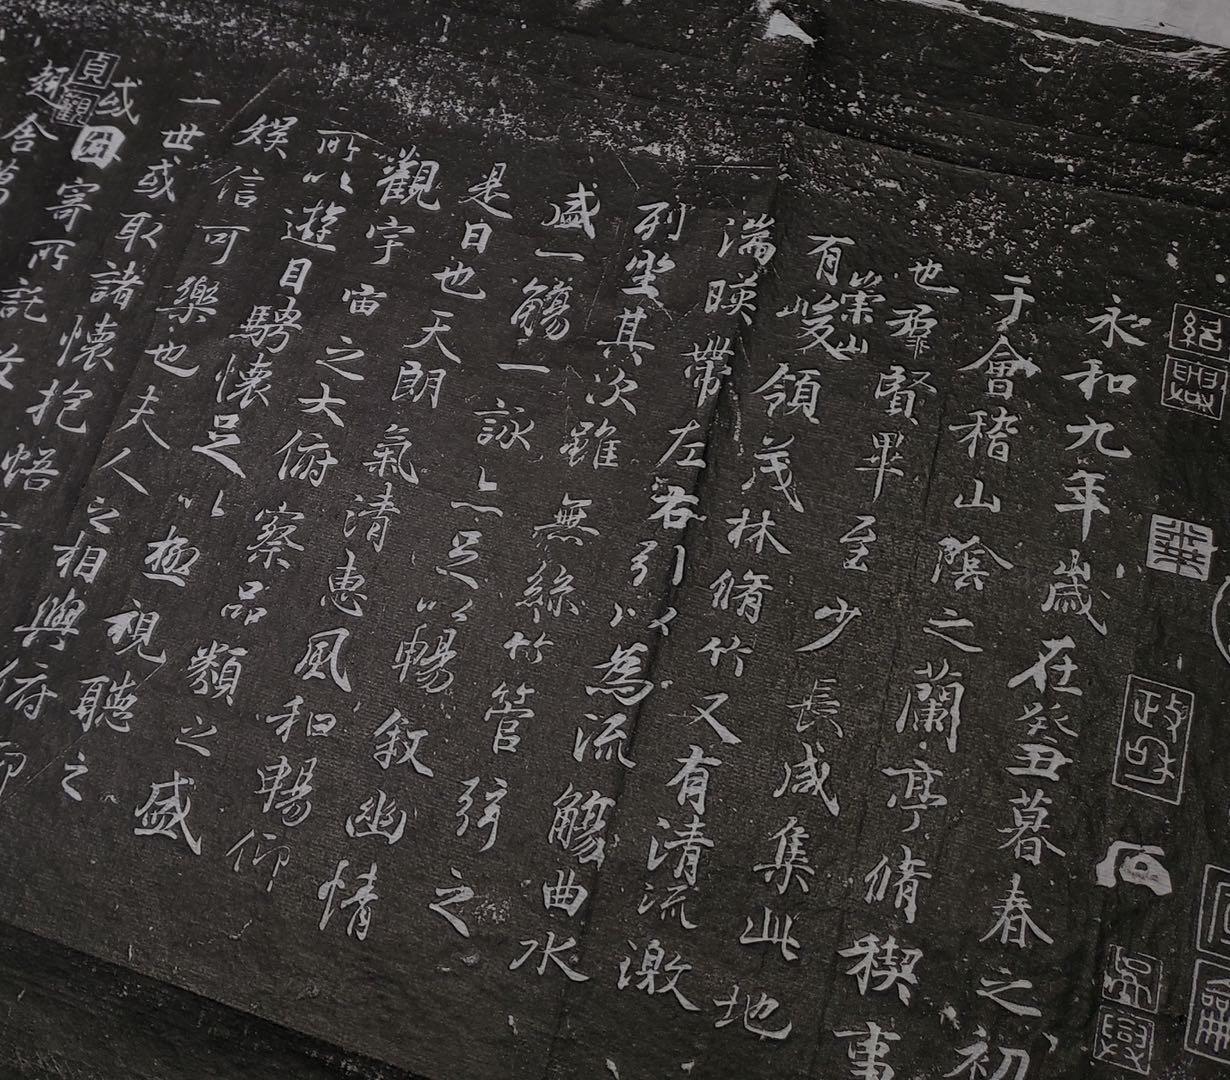 紹興
政和
永和九年歲在癸丑暮春之初
于會稽山陰之蘭亭脩稧事
也羣賢畢至少長咸集此地
有崇山峻領茂林脩竹又有清流激
湍暎帶左右引以為流觴曲水
列坐其次雖無絲竹管弦之
盛一觴一詠亦足以暢敘幽情
是日也天朗氣清惠風和暢仰
觀宇宙之大俯察品類之盛
所以遊目騁懷足以極視聽之
娛信可樂也夫人之相與俯仰
一世或取諸懷抱悟言
貞觀
或因寄所託放
趣舍萬